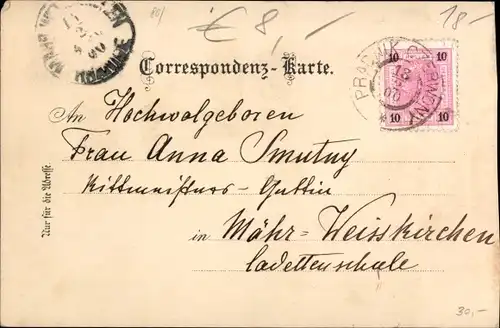 € 8,-
18-
Correspondenz-Karte.
10 10
10 10
An Hochwolgeboren
Frau Anna Smutny
Rittmeisters-Gattin
in Mähr-Weisskirchen
Cadettenschule
Nur für die Adresse
30,-